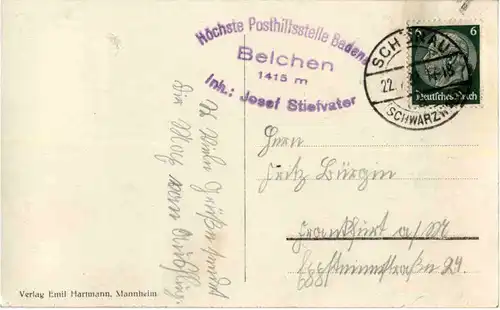 Höchste Posthilfsstelle Badens
Belchen
1415 m
Inh.: Josef Stiefvater
SCHÖNAU
22.
(SCHWARZW
6 6
Deutsches Reich
Herrn
Fritz Bürgin
Frankfurt a/M
Eppsteinerstraße 29.
Viele Grüße sendet
Die
Verlag Emil Hartmann, Mannheim